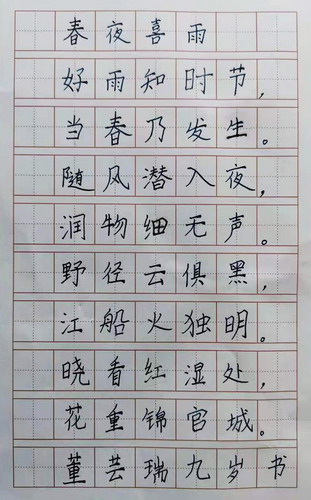 春夜喜雨
好雨知时节，
当春乃发生。
随风潜入夜，
润物细无声。
野径云俱黑，
江船火独明。
晓看红湿处，
花重锦官城。
董芸瑞九岁书